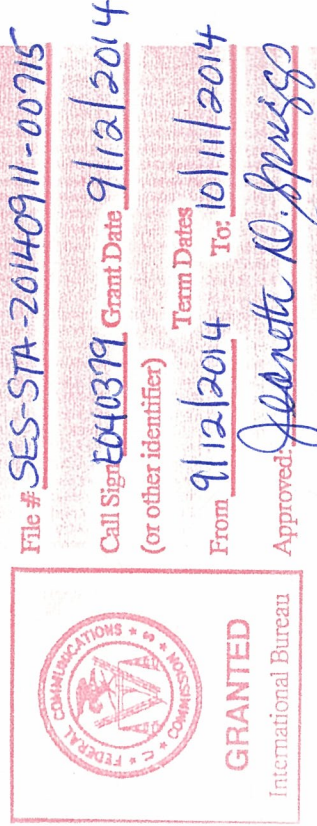 FEDERAL COMMUNICATIONS COMMISSION
GRANTED
International Bureau
File # SES-STA-20140911-00715
Call Sign E040379 Grant Date 9/12/2014
(or other identifier)
Term Dates
From 9/12/2014 To: 10/11/2014
Approved: Jeanette D. Spriggs